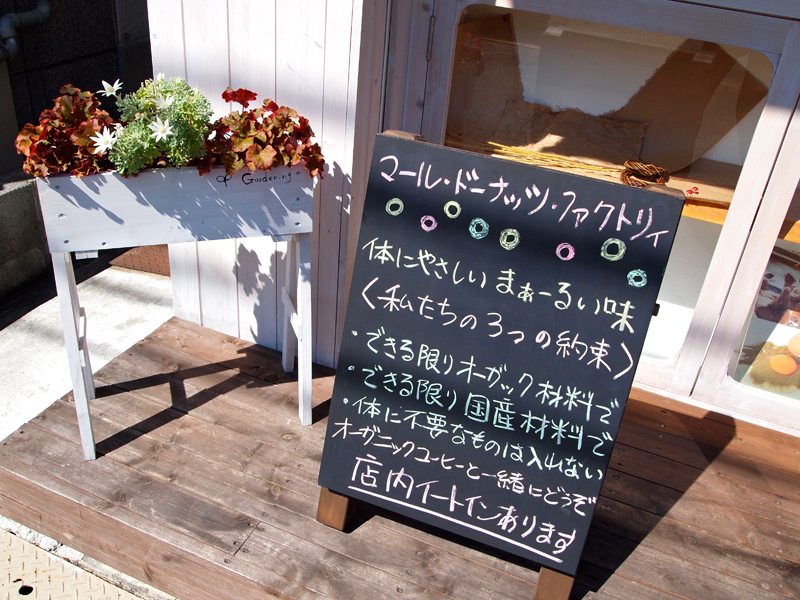 Gardening
マール・ドーナッツ・ファクトリィ
体にやさしい まぁーるい味
〈私たちの3つの約束〉
・できる限りオーガック材料で
・できる限り国産材料で
・体に不要なものは入れない
オーガニックコーヒーと一緒にどうぞ
店内イートインあります